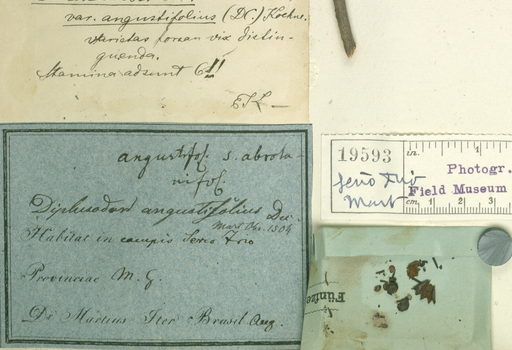 var. angustifolius (DC.) Koehne.
varietas forsan vix distin-
guenda.
Stamina adsunt 6!!
EK—
angustifol. s. abrota-
nifol.
Diplusodon angustifolius Dec.
Mart. Obs. 1504
Habitat in campis Serro Frio
Provinciae M. G.
Dr. Martius Iter Brasil. Aug.
19593
Serro Frio
Mart
in. 1
Photogr.
Field Museum
cm. 1 2 3